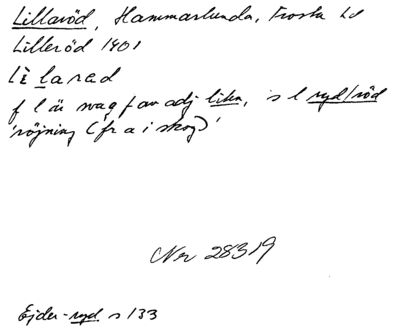 Lillaröd, Hammarlunda, Frosta hd
Lilleröd 1401
lìlarad
f l är svag f av adj liten, s l ryd/röd
'röjning (fr a i skog)'
Nr 28319
Ejder-ryd s 133